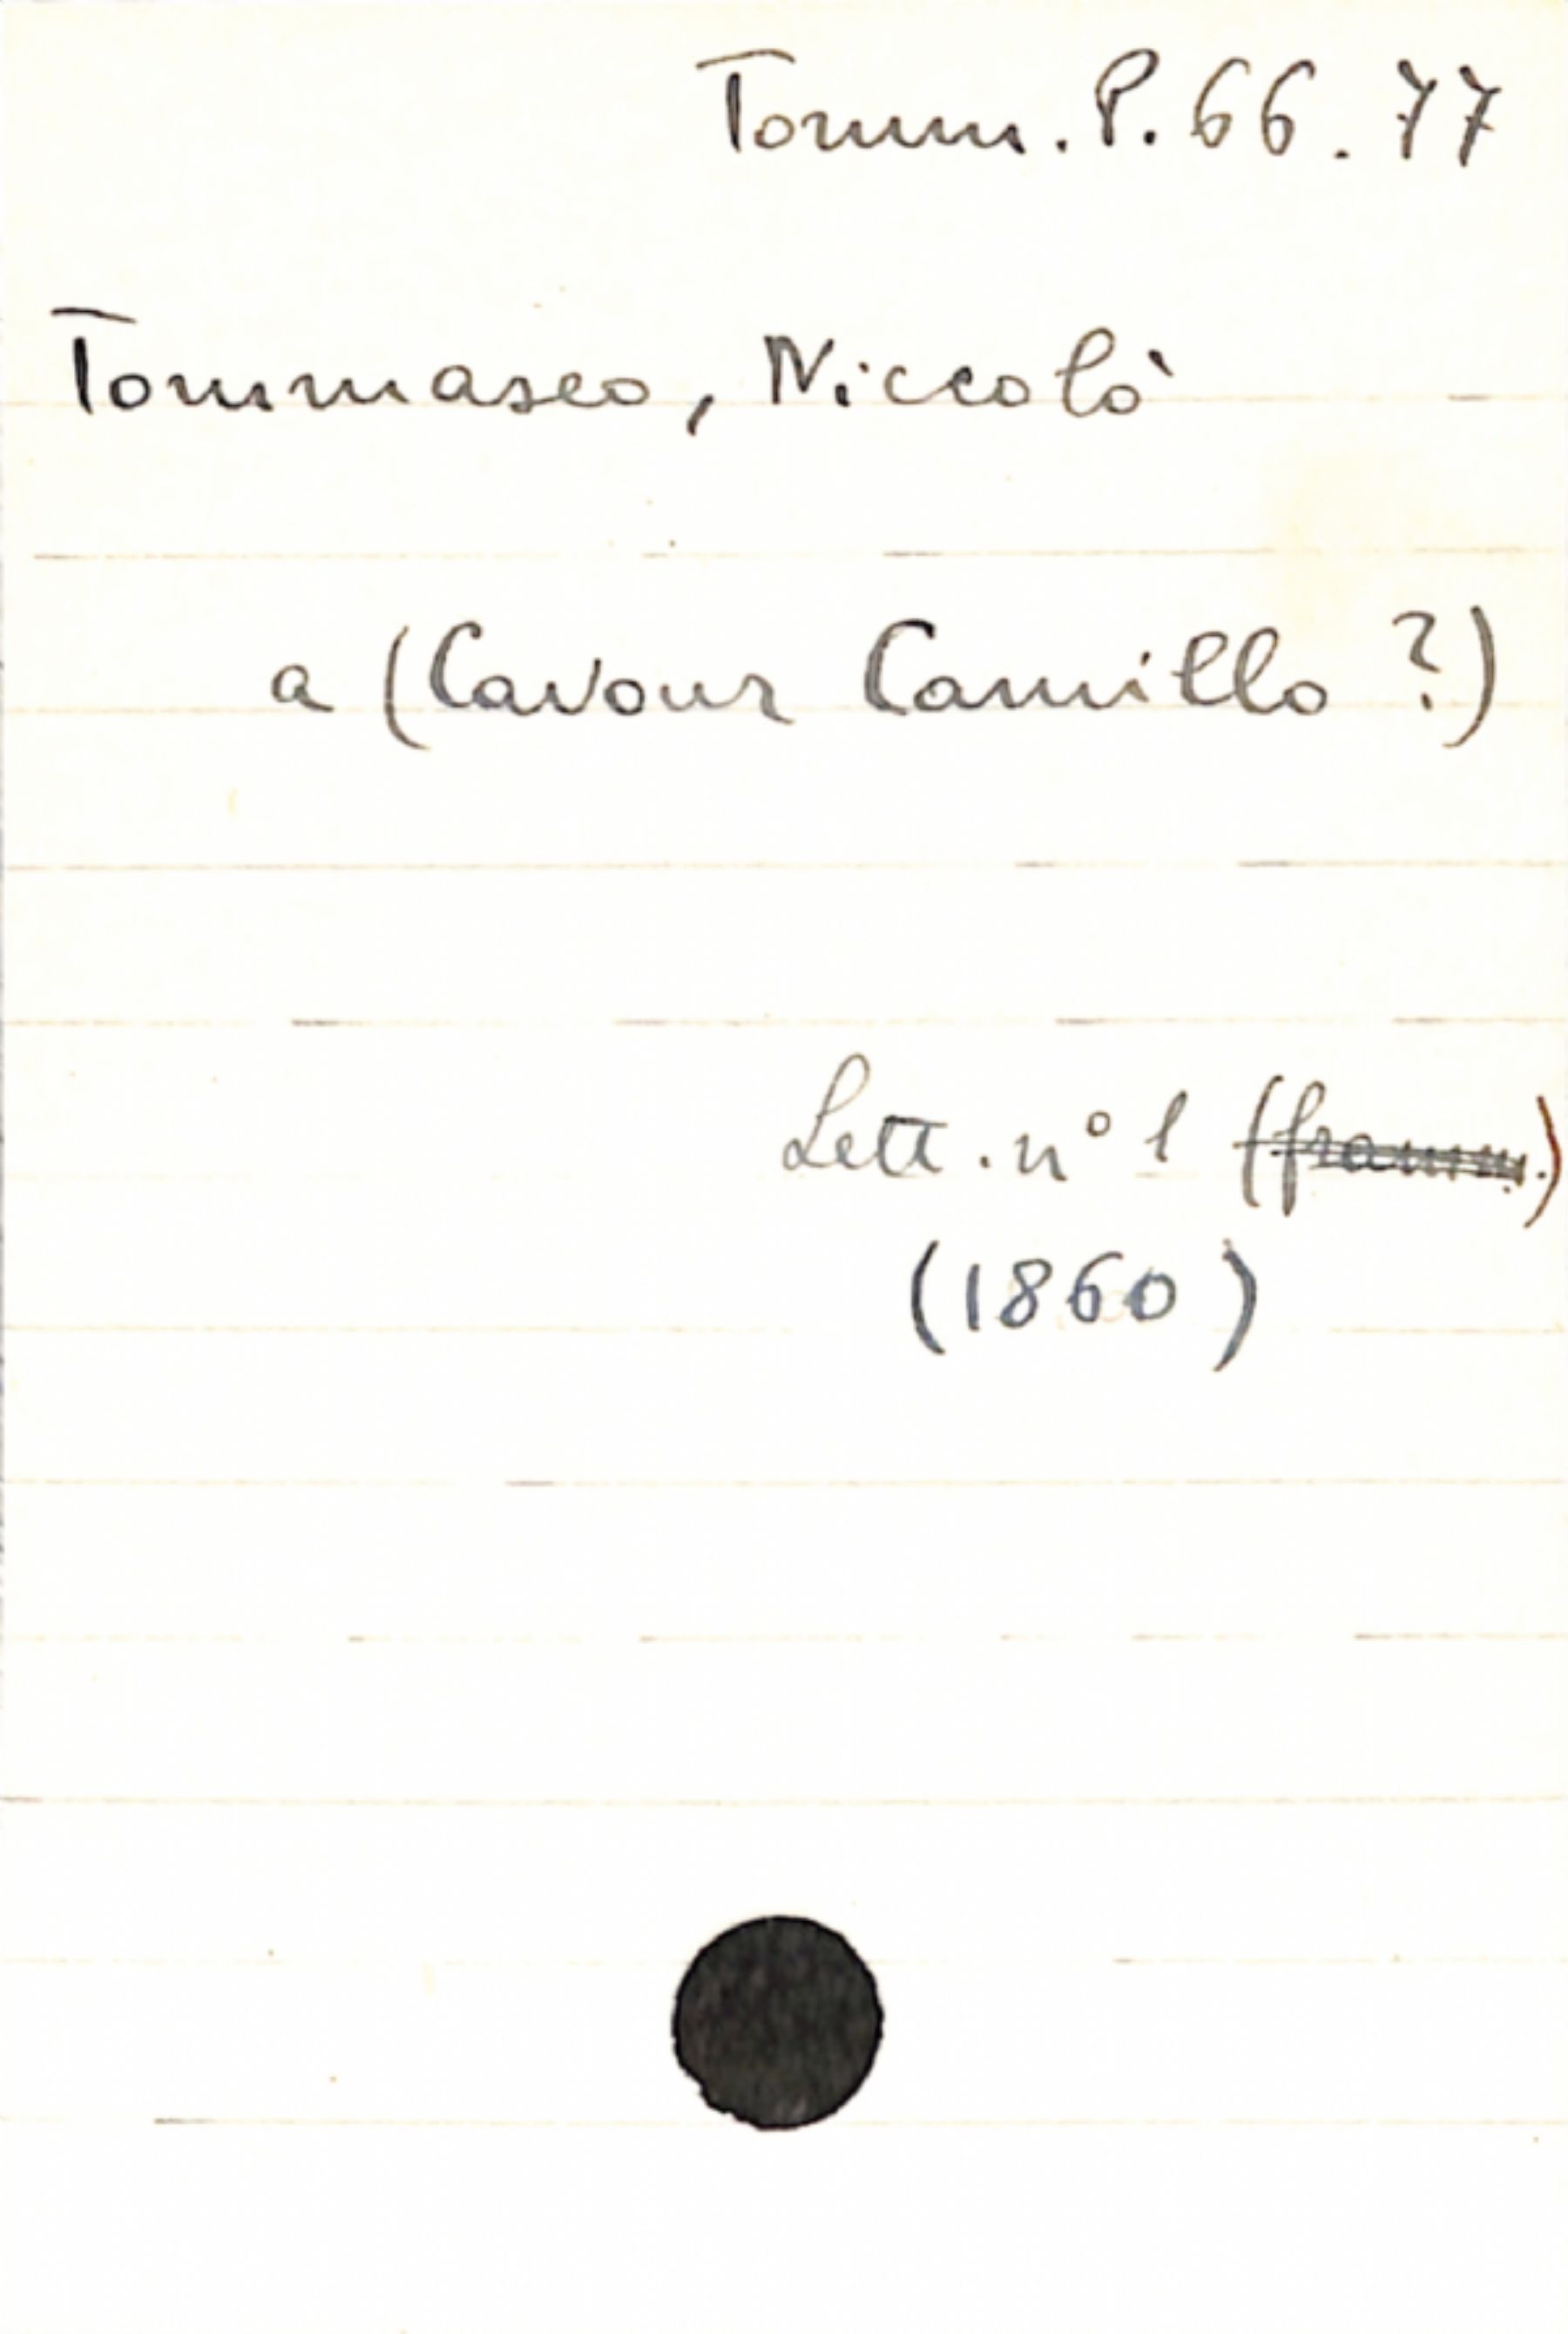 Tomm. P. 66. 77
Tommaseo, Niccolò
a (Cavour Camillo ?)
Lett. n° 1 (framm.)
(1860)